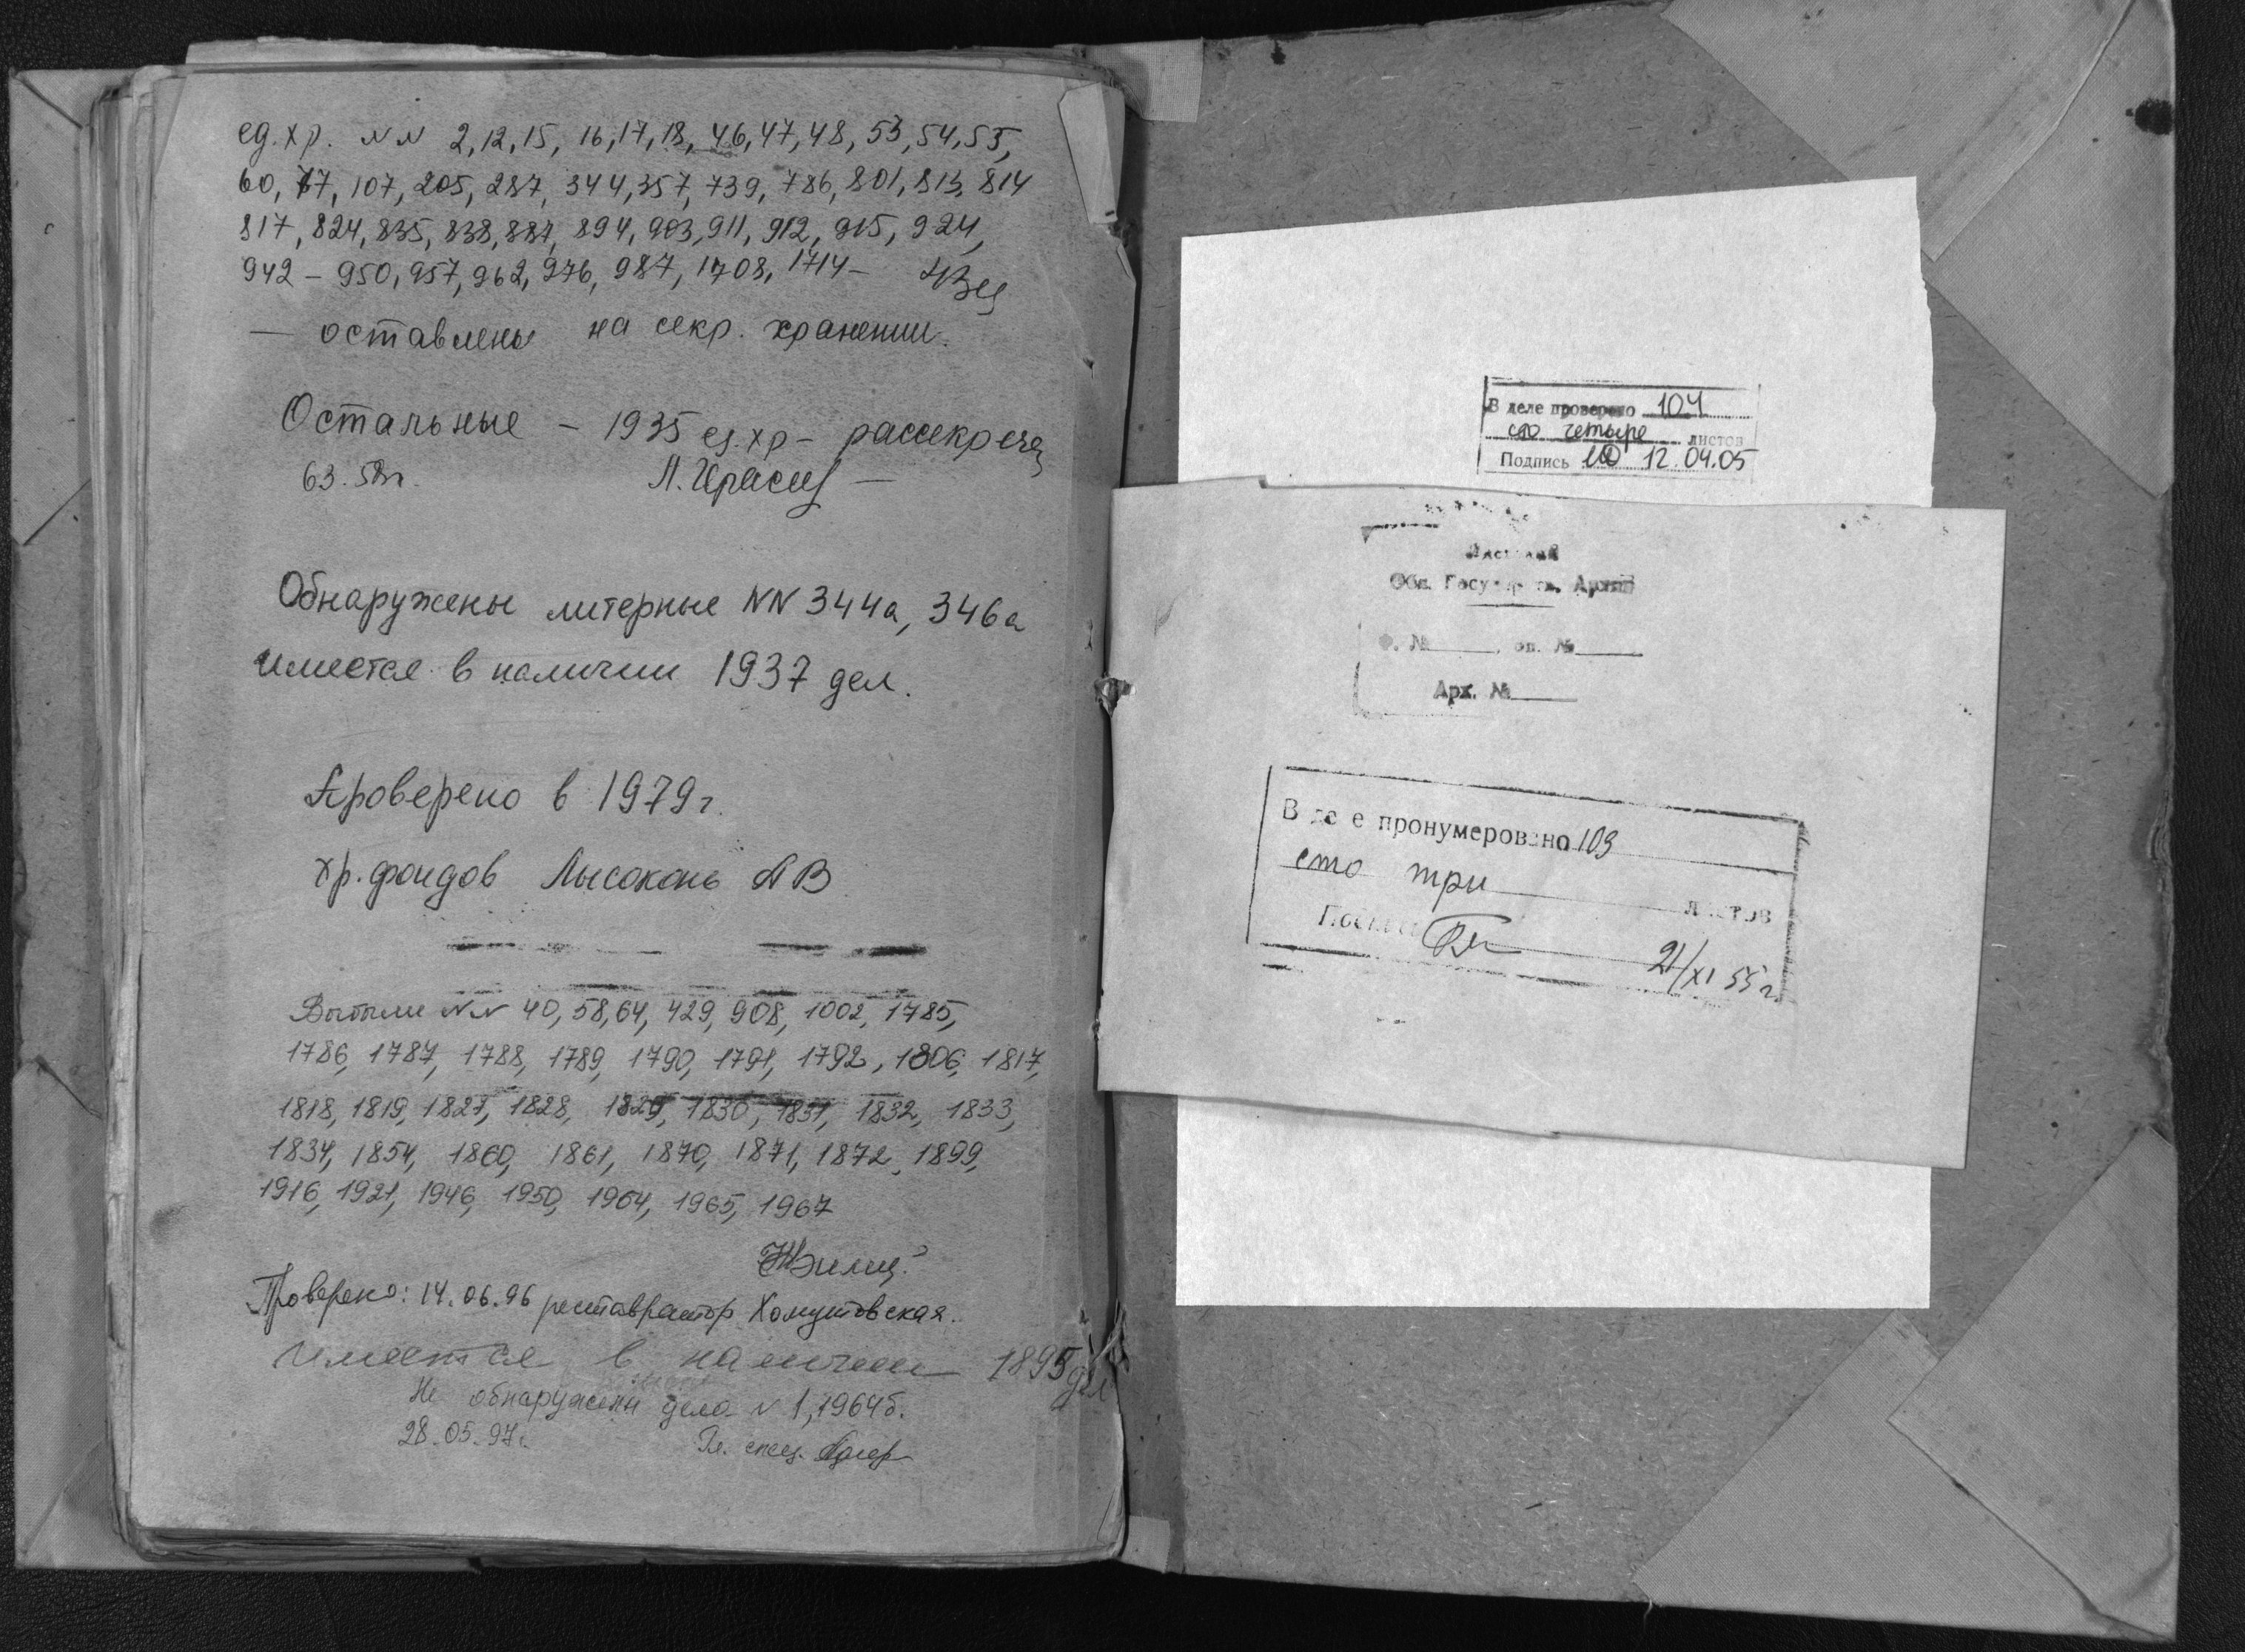 ед. хр. NN 2, 12, 15, 16, 17, 18, 46, 47, 48, 53, 54, 55,
60, 67, 107, 205, 287, 344, 357, 739, 786, 801, 813, 814
817, 824, 835, 838, 887, 894, 903, 911, 912, 915, 924,
942 – 950, 957, 962, 976, 987, 1708, 1714 –
— оставлены на секр. хранении.
Остальные – 1935 ед. хр –
63.
Обнаружены литерные NN 344а, 346а
имеется в наличии 1937 дел.
Проверено в 1979г.
хр. фондов Лысоконь АВ
Выбыли NN 40, 58, 64, 429, 908, 1002, 1785,
1786, 1787, 1788, 1789, 1790, 1791, 1792, 1806, 1817,
1818, 1819, 1827, 1828, 1829, 1830, 1831, 1832, 1833,
1834, 1854, 1860, 1861, 1870, 1871, 1872, 1899,
1916, 1921, 1946, 1950, 1964, 1965, 1967
Проверено: 14.06.96 реставратор Хомутовская.
Имеется в наличии 1895 дел
Не обнаружены дела N 1, 1964б.
28.05.97г. Гл. спец.
В деле проверено 104
сто четыре листов
Подпись 12.04.05
Обл. Государств. Архив
Ф. № , оп. №
Арх. №
В деле пронумеровано 103
сто три листов
Подпись 21/XI 55 г.